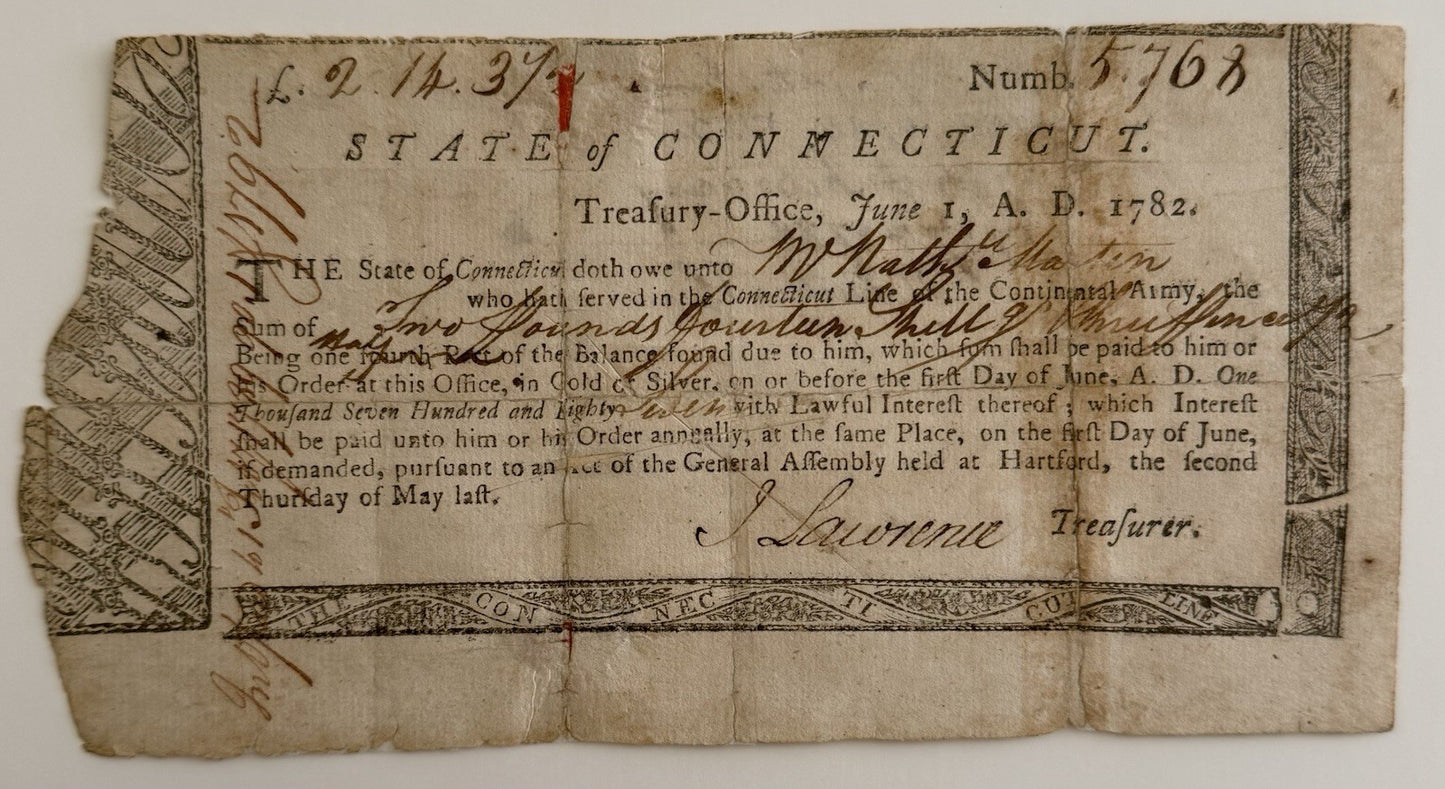 £. 2. 14. 3 1/2
Numb. 5.768
STATE of CONNECTICUT.
Treaſury-Office, June 1, A. D. 1782.
THE State of Connecticut doth owe unto Mr Nathll Martin
who hath ſerved in the Connecticut Line of the Continental Army, the
Sum of Two Pounds fourteen Shillgs & three pence 1/2
Being one fourth Part of the Balance found due to him, which ſum ſhall be paid to him or
his Order at this Office, in Gold or Silver, on or before the firſt Day of June, A. D. One
Thouſand Seven Hundred and Eighty Seven with Lawful Intereſt thereof; which Intereſt
ſhall be paid unto him or his Order annually, at the ſame Place, on the firſt Day of June,
if demanded, purſuant to an Act of the General Aſſembly held at Hartford, the ſecond
Thurſday of May laſt.
J Lawrence Treaſurer.
THE CON NEC TI CUT LINE
1792